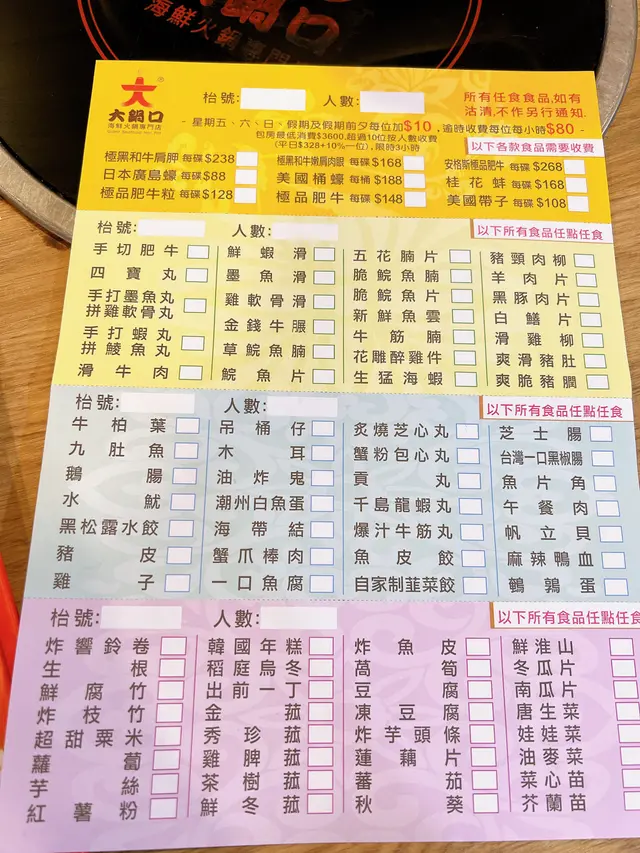 鍋口
海鮮火鍋專門店
大
®
大鍋口
海鮮火鍋專門店
枱號: 人數:
所有任食食品,如有
沽清,不作另行通知.
- 星期五、六、日、假期及假期前夕每位加$10, 逾時收費每位每小時$80 -
包房最低消費$3600,超過10位按人數收費
(平日$328+10%一位), 限時3小時
以下各款食品需要收費
極黑和牛肩胛 每碟$238 極黑和牛嫩肩肉眼 每碟$168 安格斯極品肥牛 每碟$268
日本廣島蠔 每碟$88 美國桶蠔 每桶$188 桂花蚌 每碟$168
極品肥牛粒 每碟$128 極品肥牛 每碟$148 美國帶子 每碟$108
枱號: 人數: 以下所有食品任點任食
手切肥牛 鮮蝦滑 五花腩片 豬頸肉柳
四寶丸 墨魚滑 脆鯇魚腩 羊肉片
手打墨魚丸
拼雞軟骨丸 雞軟骨滑 脆鯇魚片 黑豚肉片
金錢牛𦟌 新鮮魚雲 白鱔片
手打蝦丸
拼鯪魚丸 草鯇魚腩 牛筋腩 滑雞柳
滑牛肉 鯇魚片 花雕醉雞件 爽滑豬肚
生猛海蝦 爽脆豬膶
枱號: 人數: 以下所有食品任點任食
牛柏葉 吊桶仔 炙燒芝心丸 芝士腸
九肚魚 木耳 蟹粉包心丸 台灣一口黑椒腸
鵝腸 油炸鬼 貢丸 魚片角
水魷 潮州白魚蛋 千島龍蝦丸 午餐肉
黑松露水餃 海帶結 爆汁牛筋丸 帆立貝
豬皮 蟹爪棒肉 魚皮餃 麻辣鴨血
雞子 一口魚腐 自家制韮菜餃 鵪鶉蛋
枱號: 人數: 以下所有食品任點任食
炸響鈴卷 韓國年糕 炸魚皮 鮮淮山
生根 稻庭烏冬 萵筍 冬瓜片
鮮腐竹 出前一丁 豆腐 南瓜片
炸枝竹 金菇 凍豆腐 唐生菜
超甜粟米 秀珍菇 炸芋頭條 娃娃菜
蘿蔔 雞脾菇 蓮藕片 油麥菜
芋絲 茶樹菇 蕃茄 菜心苗
紅薯粉 鮮冬菇 秋葵 芥蘭苗